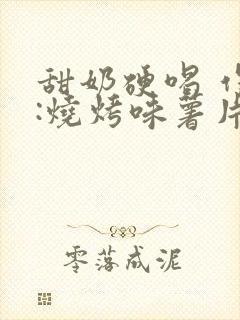 甜奶硬唱
:燒烤味薯片
零落成泥